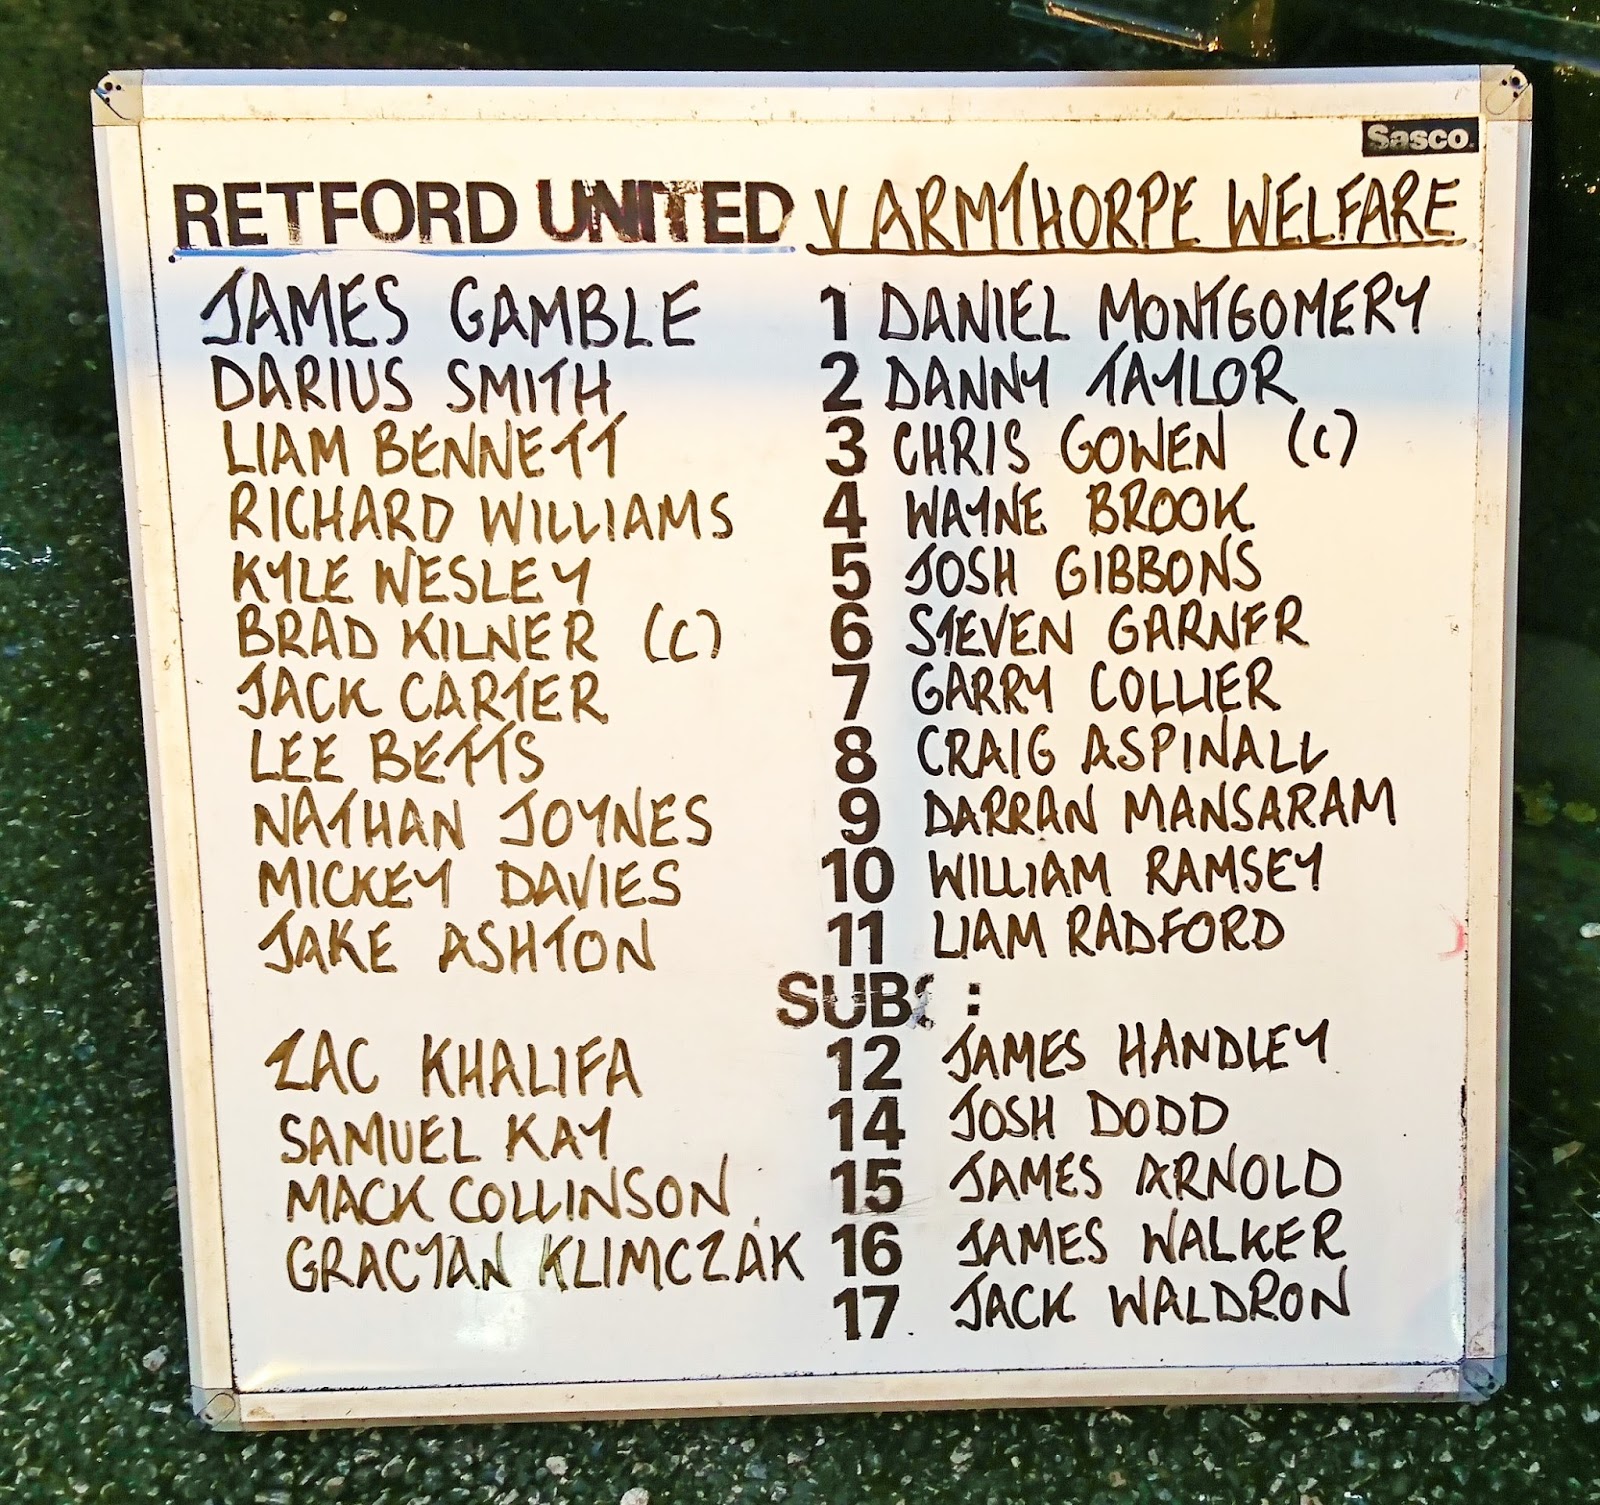 Sasco
RETFORD UNITED V ARMTHORPE WELFARE
JAMES GAMBLE 1 DANIEL MONTGOMERY
DARIUS SMITH 2 DANNY TAYLOR
LIAM BENNETT 3 CHRIS GOWEN (C)
RICHARD WILLIAMS 4 WAYNE BROOK
KYLE WESLEY 5 JOSH GIBBONS
BRAD KILNER (C) 6 STEVEN GARNER
JACK CARTER 7 GARRY COLLIER
LEE BETTS 8 CRAIG ASPINALL
NATHAN JOYNES 9 DARRAN MANSARAM
MICKEY DAVIES 10 WILLIAM RAMSEY
JAKE ASHTON 11 LIAM RADFORD
SUBS:
ZAC KHALIFA 12 JAMES HANDLEY
SAMUEL KAY 14 JOSH DODD
MACK COLLINSON 15 JAMES ARNOLD
GRACJAN KLIMCZAK 16 JAMES WALKER
17 JACK WALDRON